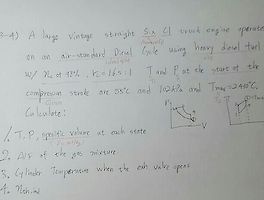 3-4) A large vintage straight Six CI truck engine operates
on an air-standard Diesel Cycle using heavy diesel fuel
w/ ηc of 98%, rc=16.5:1 T and P at the start of the
compression stroke are 55°C and 102kPa and Tmax=2410°C.
Calculate:
P
V
1. T, P, specific volume at each state
2. A/F of the gas mixture
3. Cylinder Temperature when the exh valve opens
4. ηth,ind